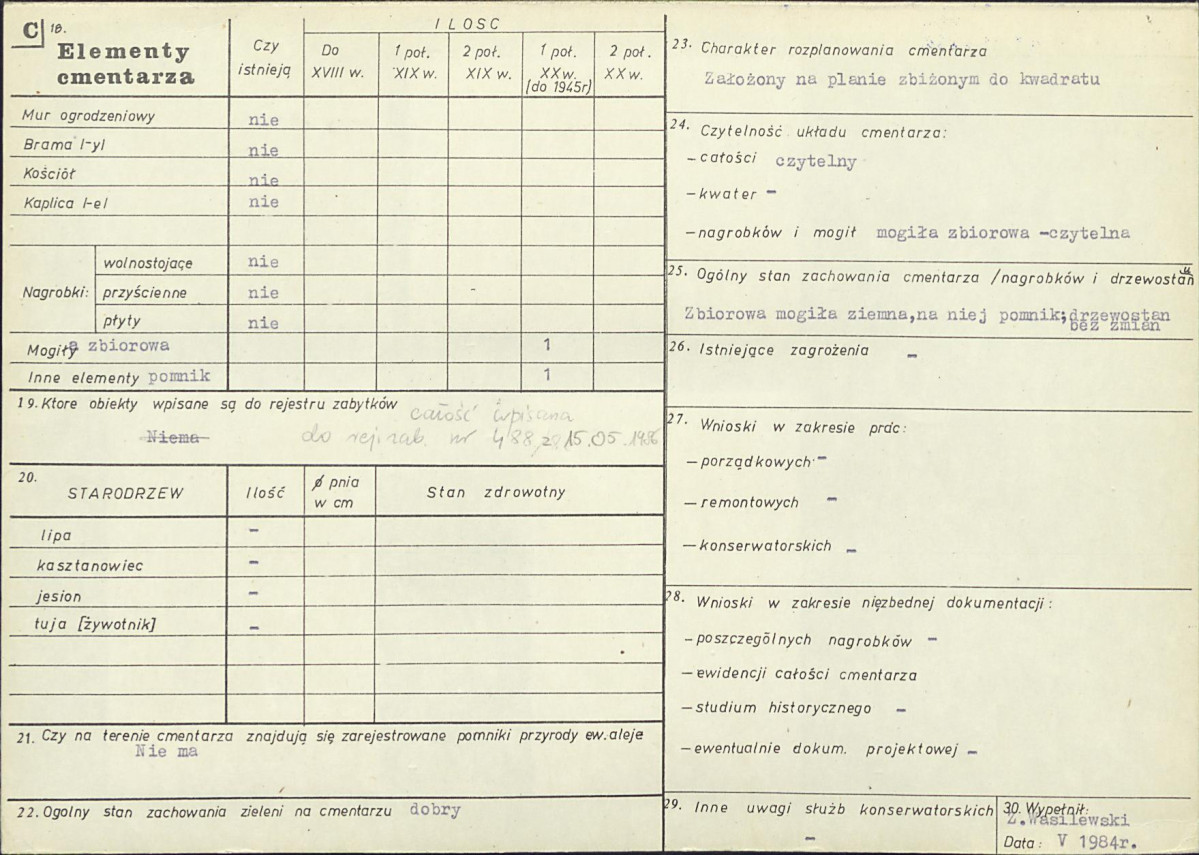 C 18.
Elementy
cmentarza
Czy
istnieją
ILOSC
Do
XVIII w.
1 poł.
XIX w.
2 poł.
XIX w.
1 poł.
XX w.
(do 1945r)
2 poł.
XX w.
Mur ogrodzeniowy nie
Brama I-yI nie
Kościół nie
Kaplica I-eI nie
Nagrobki:
wolnostojące nie
przyścienne nie
płyty nie
Mogiły a zbiorowa 1
Inne elementy pomnik 1
19. Ktore obiekty wpisane są do rejestru zabytków
całość wpisana
Niema
do rej. zab. nr 488 z 15.05.1986
20.
STARODRZEW
Ilość
ϕ pnia
w cm
Stan zdrowotny
lipa -
kasztanowiec -
jesion -
tuja [żywotnik] -
21. Czy na terenie cmentarza znajdują się zarejestrowane pomniki przyrody ew. aleje
Nie ma
22. Ogolny stan zachowania zieleni na cmentarzu dobry
23. Charakter rozplanowania cmentarza
Założony na planie zbiżonym do kwadratu
24. Czytelność układu cmentarza:
- całości czytelny
- kwater -
- nagrobków i mogił mogiła zbiorowa -czytelna
25. Ogólny stan zachowania cmentarza /nagrobków i drzewostan
Zbiorowa mogiła ziemna,na niej pomnik;drzewostan
bez zmian
26. Istniejące zagrożenia -
27. Wnioski w zakresie prac:
- porządkowych -
- remontowych -
- konserwatorskich -
28. Wnioski w zakresie nięzbednej dokumentacji:
- poszczególnych nagrobków -
- ewidencji całości cmentarza
- studium historycznego -
- ewentualnie dokum. projektowej -
29. Inne uwagi służb konserwatorskich
-
30. Wypełnił:
Z. Wasilewski
Data: V 1984r.